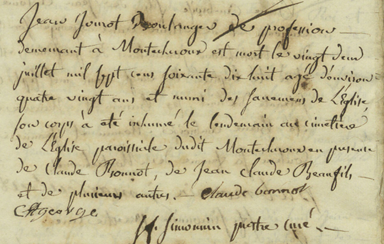 Jean Jonnot Boulanger de profession
demeurant à Montechroux est mort le vingt deux
juillet mil sept cens soixante dix huit agé d'environ
quatre vingt ans et muni des sacremens de L'Eglise
son corps à été inhumé le lendemain au cimetiere
de L'Eglise paroissiale dudit Montechroux en presence
de Claude Bonnot, de Jean Claude Beaufils
et de plusieurs autres. claude bonnot
Simonin pretre curé.